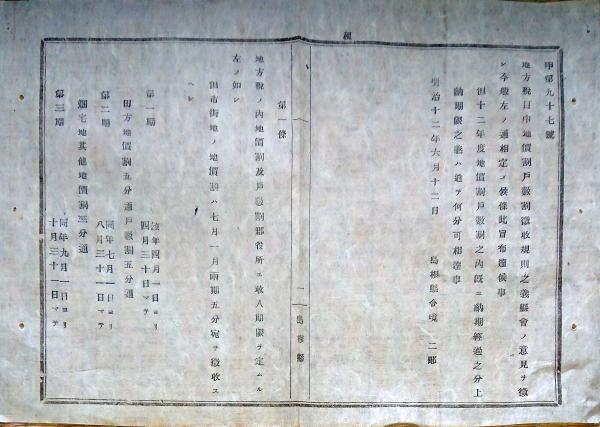 甲第九十七號
地方税目中地價割戸數割徴收規則之義縣會ノ意見ヲ徴
シ今般左ノ通相定メ候條此旨布達候事
但十二年度地價割戸數割之内既ニ納期經過之分上
納期限之義ハ追テ何分可相達事
明治十二年六月十二日 島根縣令境 二郎
一 島根縣
第一條
地方税ノ内地價割及戸數割郡役所ニ收入期限ヲ定ムル
左ノ如シ
但市街地ノ地價割ハ七月一月兩期五分宛ヲ徴收ス
ヘシ
第一期 該年四月一日ヨリ
四月三十日マテ
田方地價割五分通戸數割五分通
第二期 同年七月一日ヨリ
八月三十一日マテ
畑宅地其他地價割五分通
第三期 同年九月一日ヨリ
十月三十一日マテ